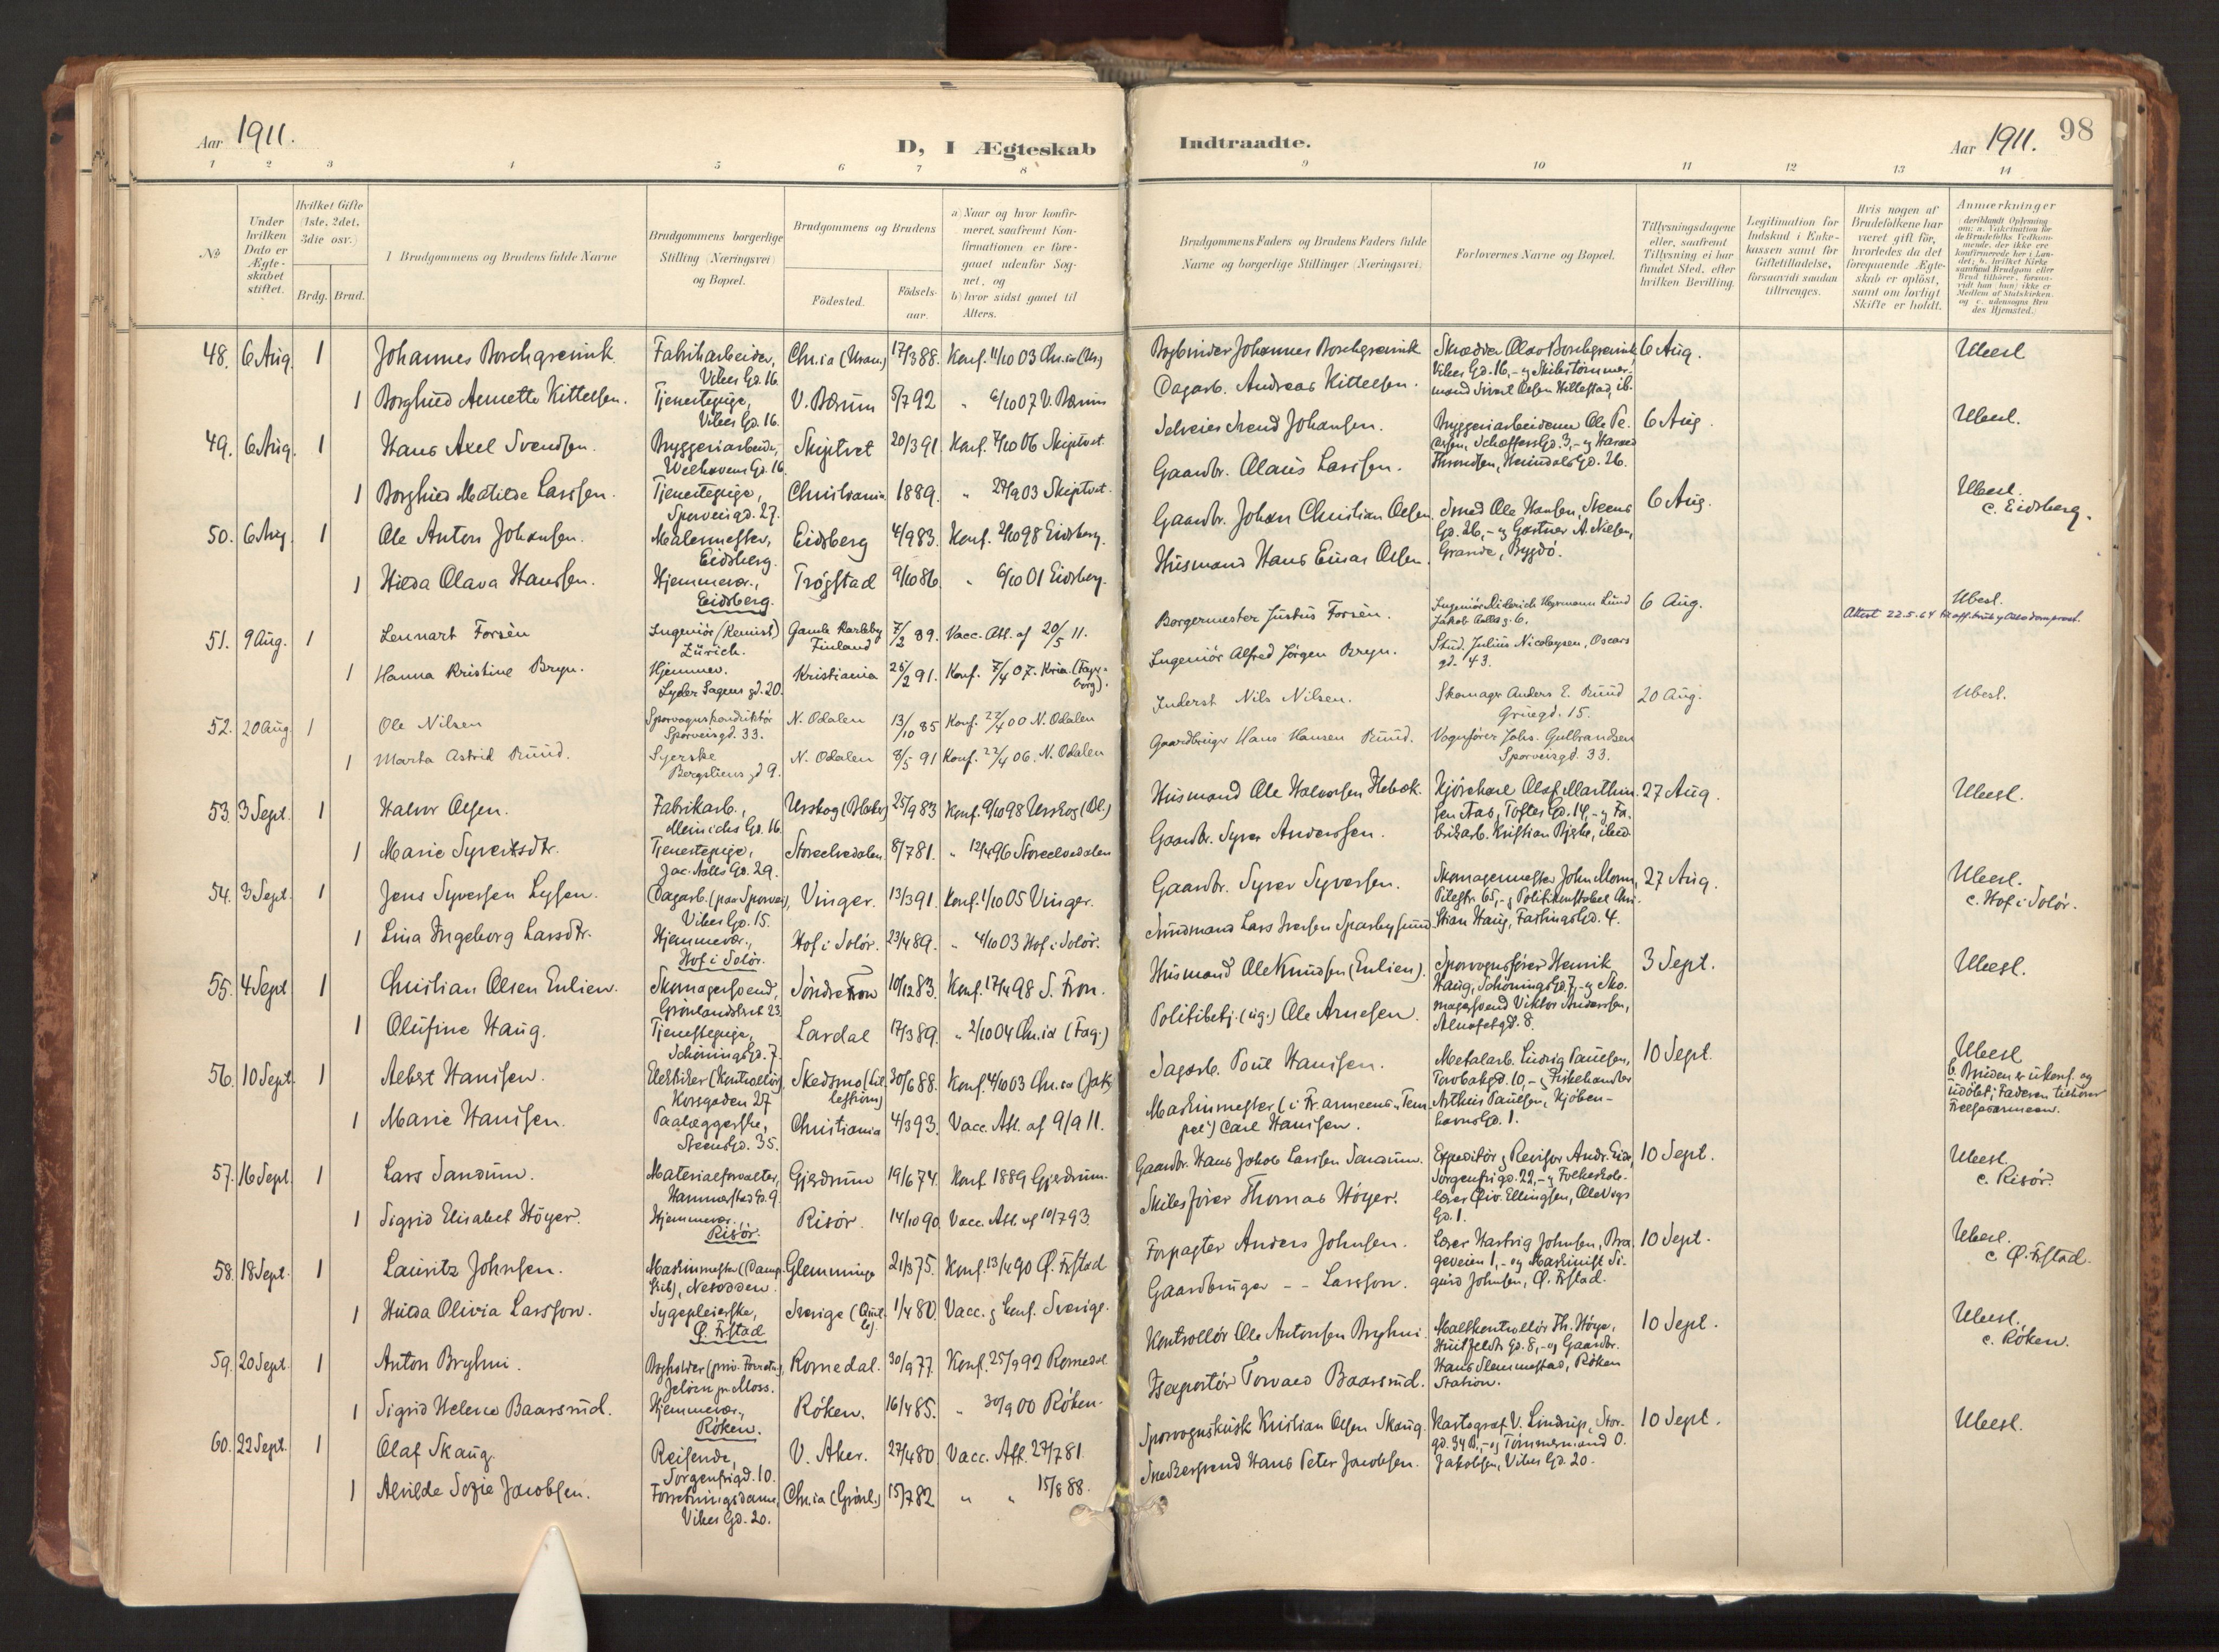 Aar 1911.
D, I Ægteskab
Indtraadte.
Aar 1911.
98
1 2 3 4 5 6 7 8
9 10 11 12 13 14
No
Under hvilken Dato er Ægteskabet stiftet.
Hvilket Gifte (1ste, 2det, 3die osv.)
Brdg. Brud.
Brudgommens og Brudens fulde Navne
Brudgommens borgerlige Stilling (Næringsvei) og Bopæl.
Brudgommens og Brudens
Födested.
Födselsaar.
a) Naar og hvor konfirmeret, saafremt Konfirmationen er foregaaet udenfor Sognet, og
b) hvor sidst gaaet til Alters.
Brudgommens Faders og Brudens Faders fulde Navne og borgerlige Stillinger (Næringsvei)
Forlovernes Navne og Bopæl.
Tillysningsdagene eller, saafremt Tillysning ei har fundet Sted, efter hvilken Bevilling.
Legitimation for Indskud i Enkekassen samt for Giftetilladelse, forsaavidt saadan tiltrænges.
Hvis nogen af Brudefolkene har været gift för, hvorledes da det foregaaende Ægteskab er oplöst, samt om lovligt Skifte er holdt.
Anmærkninger
48. 6 Aug. 1 Johannes Borchgrevink Fabrikarbeider, Vibes Gd. 16. 17/3 88. Konf. 11/10 03
Bogbinder Johannes Borchgrevink 6 Aug. Ubesl.
1 Borghild Annette Kittelsen. Tjenestepige, Vibes Gd. 16. V. Bærum 5/7 92 " 6/10 07 V. Bærum
Dagarb. Andreas Kittelsen.
49. 6 Aug. 1 Hans Axel Svendsen. Bryggeriarbeider, Welhavens Gd. 16. Skiptvet 20/3 91 Konf. 7/10 06 Skiptvet.
Svend Johansen. 6 Aug. Ubesl.
1 Borghild Matilde Larssen. Tjenestepige, Sporveisgd. 27. Christiania 1889. " 27/9 03 Skiptvet.
Gaardbr. Olaus Larssen.
50. 6 Aug. 1 Ole Anton Johansen. Malermester, Eidsberg. Eidsberg 4/9 83. Konf. 2/10 98 Eidsberg.
Gaardbr. Johan Christian Olsen. Smed Ole Hansen, Steens Gd. 26, - og Gartner A. Nielsen, Grande, Bygdö. 6 Aug. Ubesl. c. Eidsberg.
1 Hilda Olava Hanssen. Hjemmevær., Eidsberg. Trögstad 9/10 86. " 6/10 01 Eidsberg.
Husmand Hans Einar Olsen.
51. 9 Aug. 1 Lennart Forsèn Ingeniör (Kemist) Zürich. Gamle Karleby Finland 7/2 89. Vacc. Att. af 20/5 11.
Borgermester Justus Forsèn. 6 Aug. Attest 22.5.64 Ubesl.
1 Hanna Kristine Bryn. Hjemmev. Lyder Sagens gd. 20. Kristiania 25/2 91. Konf. 7/4 07. Kria. (Fagerborg).
Ingeniör Alfred Jörgen Bryn. Stud. Julius Nicolaysen, Oscars gd. 43.
52. 20 Aug. 1 Ole Nilsen Sporvognskonduktör Sporveisgd. 33. N. Odalen 13/10 85 Konf. 22/4 00 N. Odalen
Inderst Nils Nilsen. Skomager Anders E. Ruud Grüegd. 15. 20 Aug. Ubesl.
1 Marta Astrid Ruud. Syerske Bergsliens gd 9. N. Odalen 8/5 91 Konf. 22/4 06. N. Odalen
Gaardbruger Hans Hansen Ruud. Vognfører Johs. Gulbrandsen Sporveisgd. 33.
53. 3 Sept. 1 Halvor Olsen. Fabrikarb., Meinichs Gd. 16. 25/9 83 Konf. 9/10 98 Urskog (Bl.)
Husmand Ole Halvorsen 27 Aug. Ubesl.
1 Marie Syvertsdtr. Tjenestepige, Jac. Aalls Gd. 29. Storelvedalen 8/7 81. " 12/4 96 Storelvedalen
Gaardbr. Syver Anderssen.
54. 3 Sept. 1 Jens Syversen Dagarb. (paa Sporvei), Vibes Gd. 15. Vinger. 13/3 91. Konf. 1/10 05 Vinger.
Gaardbr. Syver Syversen. 27 Aug. Ubesl. c. Hof i Solör.
1 Lina Ingeborg Larsdtr. Hjemmevær., Hof i Solör. Hof i Solör. 23/4 89. " 4/10 03 Hof i Solör.
55. 4 Sept 1 Christian Olsen Enlien. Skomagersvend, Söndre Fron 10/12 83. Konf. 17/4 98 S. Fron.
Husmand Ole Knudsen (Enlien). Sporvognsfører Henrik Haug, Schönings Gd. 7, - og Skomagersvend Viktor Anderssen, 3 Sept. Ubesl.
1 Olufine Haug. Tjenestepige, Schönings Gd. 7. Lardal 17/3 89. " 2/10 04 Chr.ia (Fag.)
Politibetj. Ole Arnesen.
56. 10 Sept. 1 Albert Hanssen. Elektriker (Kontrollör), Korsgaden 27 Skedsmo (Lillestrøm) 30/6 88. Konf. 4/10 03 Chr.ia (Jak.)
Sagarb. Poul Hanssen. 10 Sept. Ubesl. b. Bruden er ukonf. og udöbt; Faderen tilhører Frelsesarmeen.
1 Marie Hanssen. Paalæggerske, Steens Gd. 35. Christiania 4/3 93. Vacc. Att. af 9/9 11.
Maskinmester (i Fr.armeens "Tempel") Carl Hanssen. Arthur Paulsen, Kjöbenhavns Gd. 1.
57. 16 Sept. 1 Lars Sandum. Materialforvalter, Hammerstad Gd. 9. Gjerdrum 19/6 74. Konf. 1889 Gjerdrum.
Gaardbr. Hans Jakob Larssen Sandum. Expeditör & Revisor Andr. Eide, Sorgenfrigd. 22, - og Folkeskolelærer Ellingsen, Ole Vigs Gd. 1. 10 Sept. Ubesl. c. Risör.
1 Sigrid Elisabet Höyer. Hjemmevær., Risör. Risör. 14/10 90. Vacc. Att. af 10/7 93.
Skibsfører Thomas Höyer.
58. 18 Sept. 1 Lauritz Johnsen. Maskinmester (Dampskib), Nesodden. Glemminge 21/3 75. Konf. 13/4 90 Ø. Fr.stad
Forpagter Anders Johnsen. Lærer Hartvig Johnsen, Bregeveien 1, - og Maskinist Sigurd Johnsen, Ø. Fr.stad. 10 Sept. Ubesl. c. Ø. Fr.stad.
1 Hulda Olivia Larsson. Sygepleierske, Ø. Fr.stad Sverige 1/4 80. Vacc. & Konf. Sverige.
Gaardbruger - - Larsson.
59. 20 Sept. 1 Anton Bryhni. Bogholder (priv. Forretn.), Jelöen pr. Moss. Romedal. 30/9 77. Konf. 25/9 92 Romedal
Kontrollör Ole Antonsen Bryhni. Maltkontrollör Th. Höye, Huitfeldts Gd. 8, - og Gaardbr. Hans Slemmestad, Röken Station. 10 Sept. Ubesl. c. Röken.
1 Sigrid Helene Baarsrud. Hjemmevær., Röken. Röken. 16/4 85. " 30/9 00 Röken.
Isexportör Torvald Baarsrud.
60. 22 Sept. 1 Olaf Skaug. Reisende, Sorgenfrigd. 10. V. Aker. 27/4 80. Vacc. Att. 27/7 81.
Sporvognskusk Kristian Olsen Skaug. Kartograf V. Lindrup, Storgd. 34 B., - og Tömmermand O. Jakobsen, Vibes Gd. 20. 10 Sept. Ubesl.
1 Alvilde Sofie Jacobsen. Forretningsdame, Vibes Gd. 20. Chr.ia (Grönl.) 15/7 82 " " 15/8 88.
Snedkersvend Hans Peter Jacobsen.